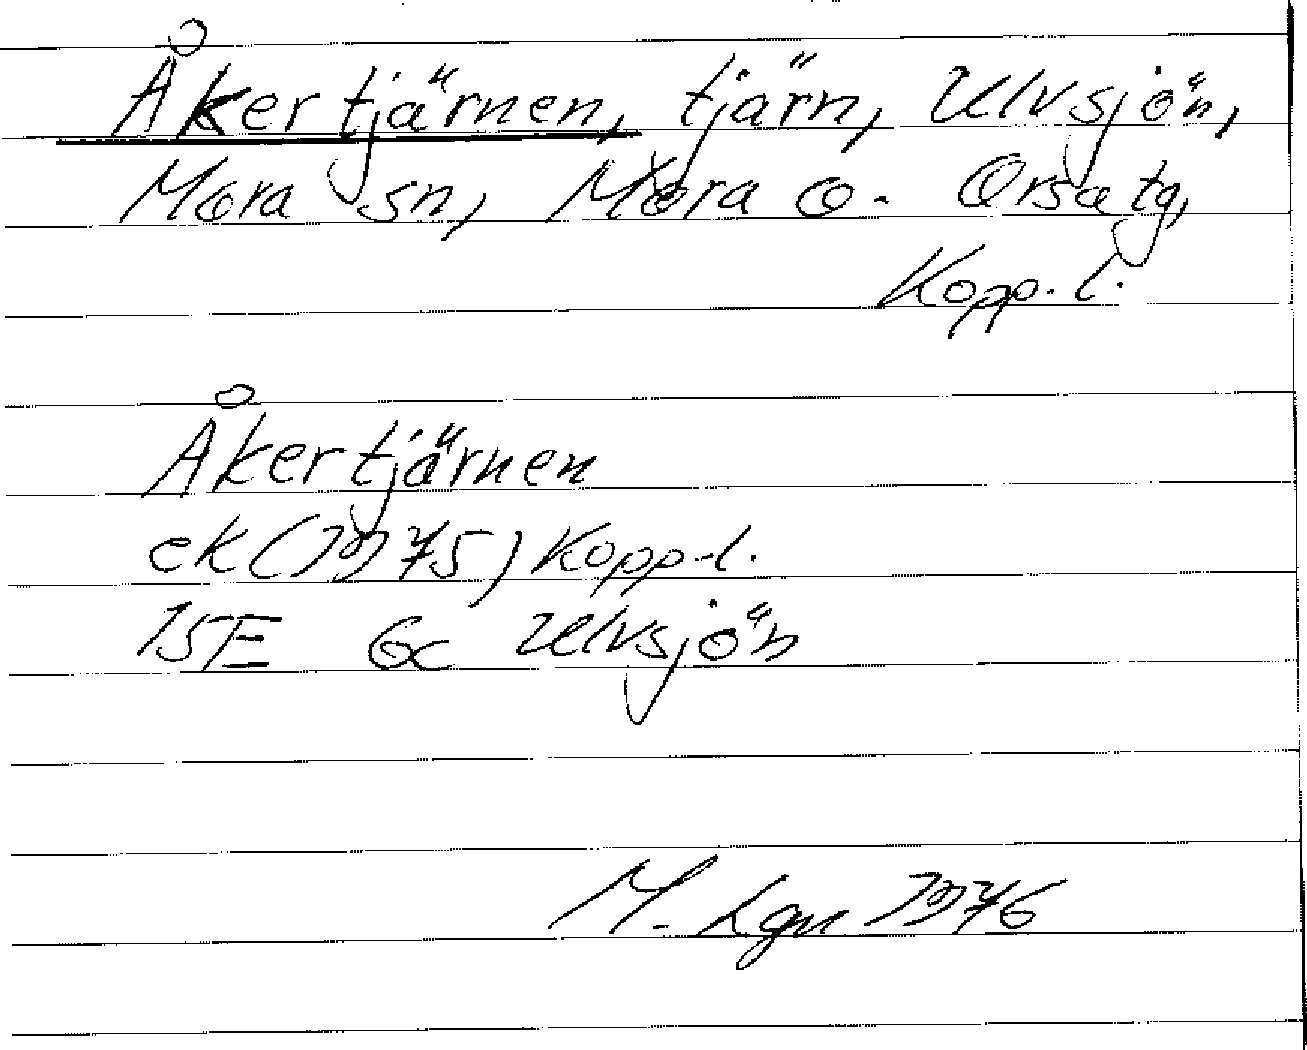 Åkertjärnen, tjärn, Ulvsjön,
Mora sn, Mora o. Orsa tg,
Kopp. l.
Åkertjärnen
ek (1975) Kopp. l.
15E 6c Ulvsjön
M. Lgn 1976